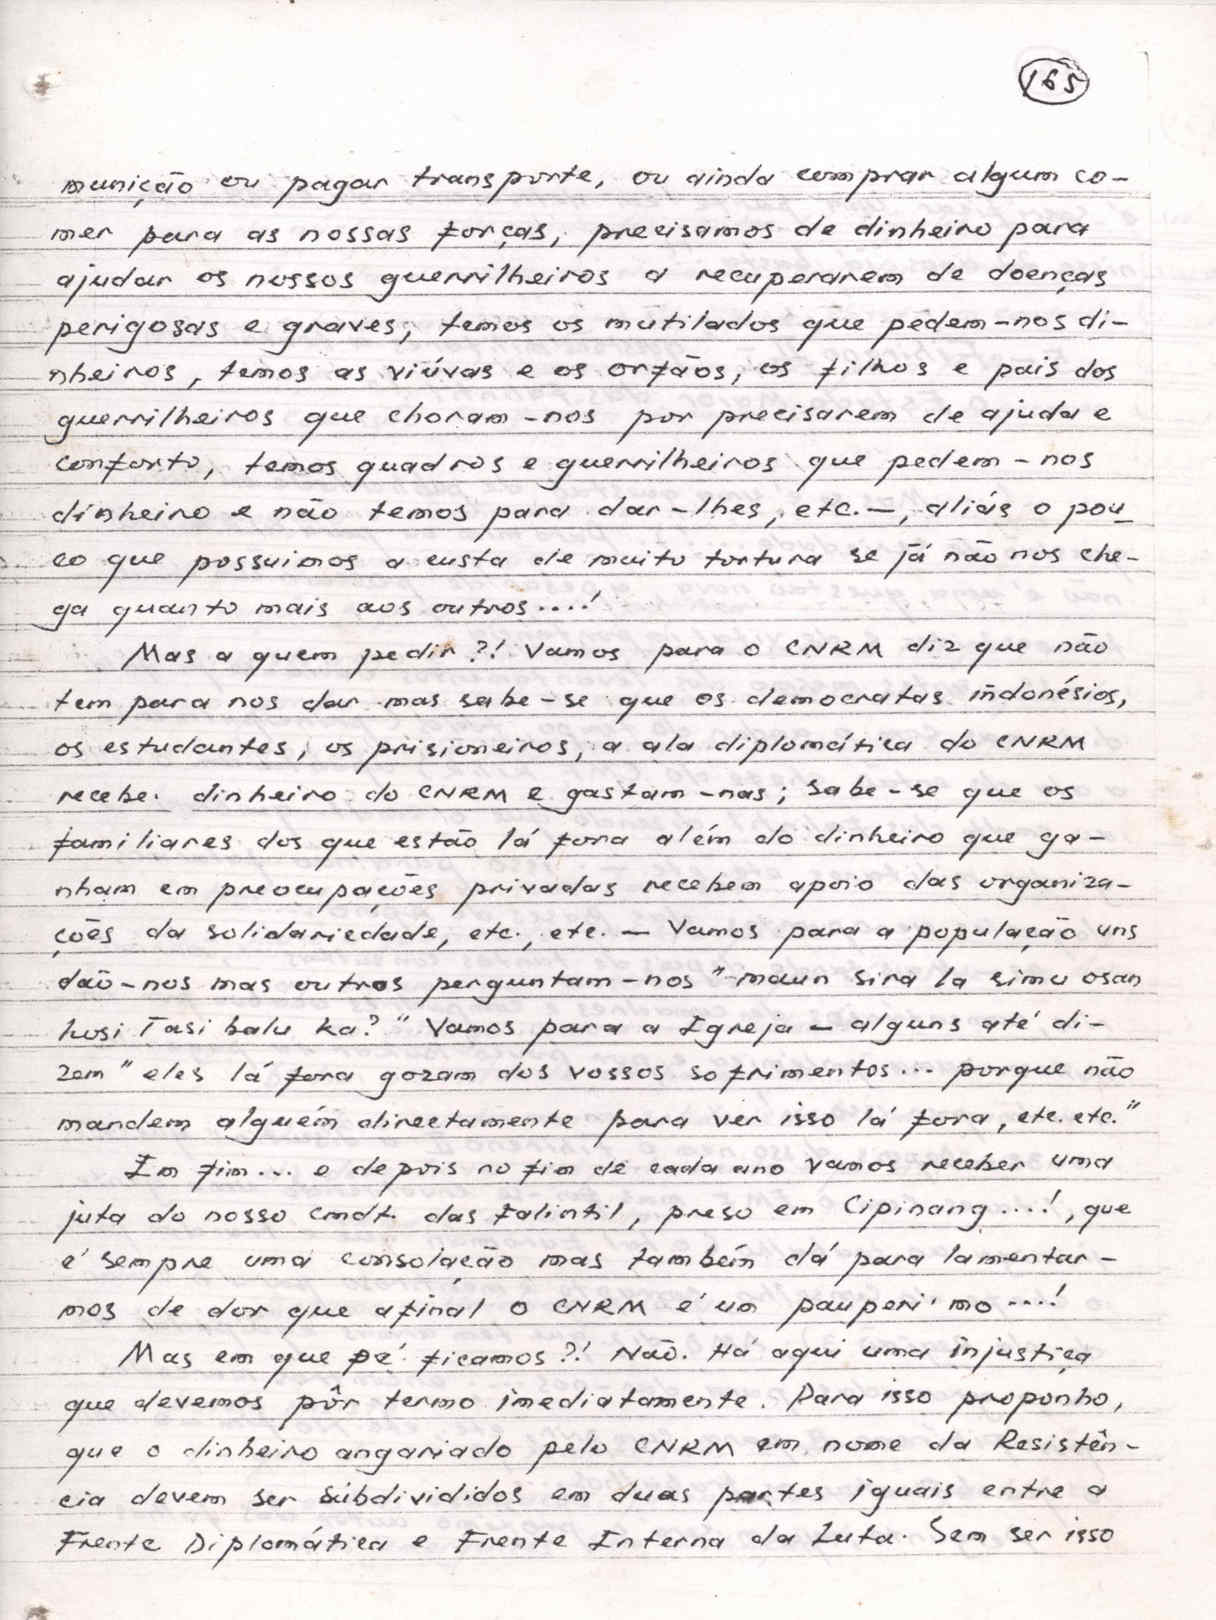 165
munição ou pagar transporte, ou ainda comprar algum co-
mer para as nossas forças, precisamos de dinheiro para
ajudar os nossos guerrilheiros a recuperarem de doenças
perigosas e graves, temos os mutilados que pedem-nos di-
nheiros, temos as viúvas e os orfãos, os filhos e pais dos
guerrilheiros que choram-nos por precisarem de ajuda e
conforto, temos quadros e guerrilheiros que pedem-nos
dinheiro e não temos para dar-lhes, etc.-, aliás o pou-
co que possuimos a custa de muito tortura se já não nos che-
ga quanto mais aos outros....!
Mas a quem pedir?! Vamos para o CNRM diz que não
tem para nos dar mas sabe-se que os democratas indonésios,
os estudantes, os prisioneiros, a ala diplomática do CNRM
recebe. dinheiro do CNRM e gastam-nas; sabe-se que os
familiares dos que estão lá fora além do dinheiro que ga-
nham em preocupações privadas recebem apoio das organiza-
ções da solidariedade, etc., etc. - Vamos para a população uns
dão-nos mas outros perguntam-nos "maun sira la simu osan
husi Tasi balu ka?" Vamos para a Igreja - alguns até di-
zem "eles lá fora gozam dos vossos sofrimentos... porque não
mandem alguém directamente para ver isso lá fora, etc. etc."
Em fim... e depois no fim de cada ano vamos receber uma
juta do nosso cmdt. das Falintil, preso em Cipinang....!, que
é sempre uma consolação mas também dá para lamentar-
mos de dor que afinal o CNRM é um pauperi'mo....!
Mas em que pé ficamos?! Não. Há aqui uma injustiça
que devemos pôr termo imediatamente. Para isso proponho,
que o dinheiro angariado pelo CNRM em nome da Resistên-
cia devem ser subdivididos em duas partes iguais entre a
Frente Diplomática e Frente Interna da Luta. Sem ser isso